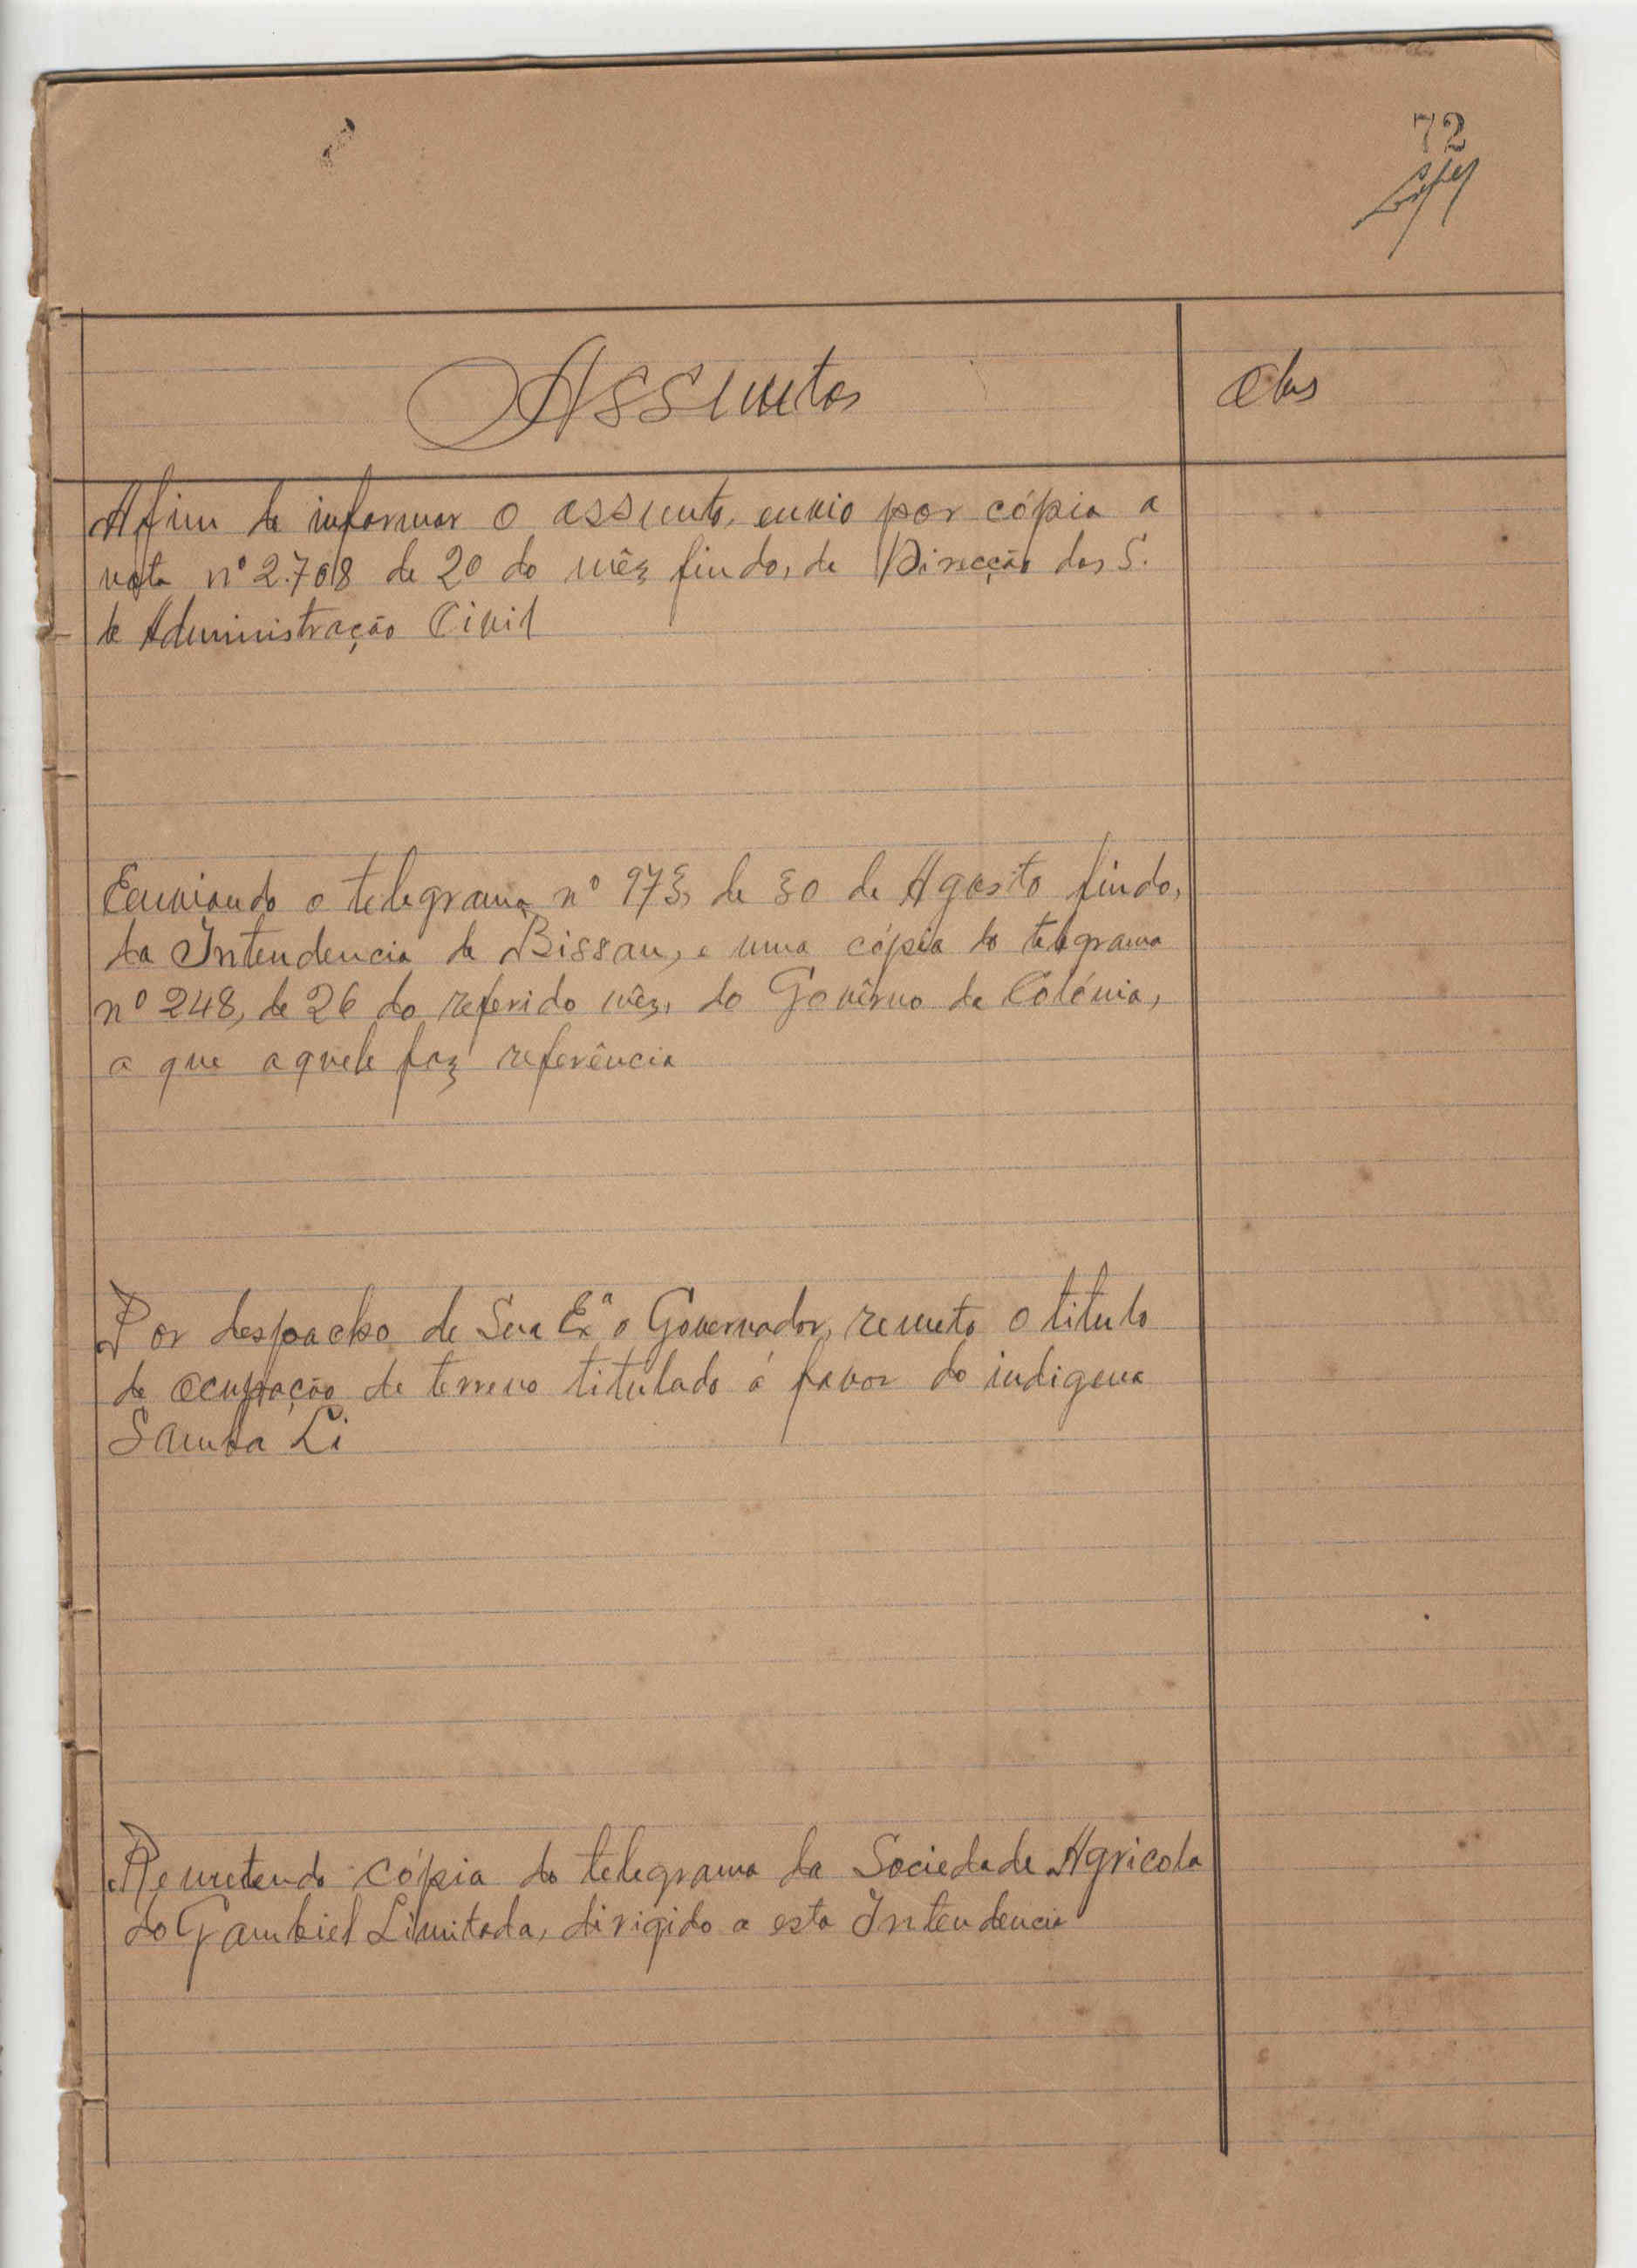 72
Assuntos
Obs
Afim de informar o assunto, envio por cópia a
nota nº 2.708 de 20 do mês findo, da Direcção dos S.
de Administração Civil
Enviando o telegrama nº 973, de 30 de Agosto findo,
da Intendencia de Bissau, e uma cópia do telegrama
nº 248, de 26 do referido mês, do Govêrno da Colónia,
a que aquele faz referência
Por despacho de Sua Exª o Governador, remeto o titulo
de ocupação de terreno titulado á favor do indigena
Samba Li
Remetendo cópia do telegrama da Sociedade Agricola
do Gambiel Limitada, dirigido a esta Intendencia